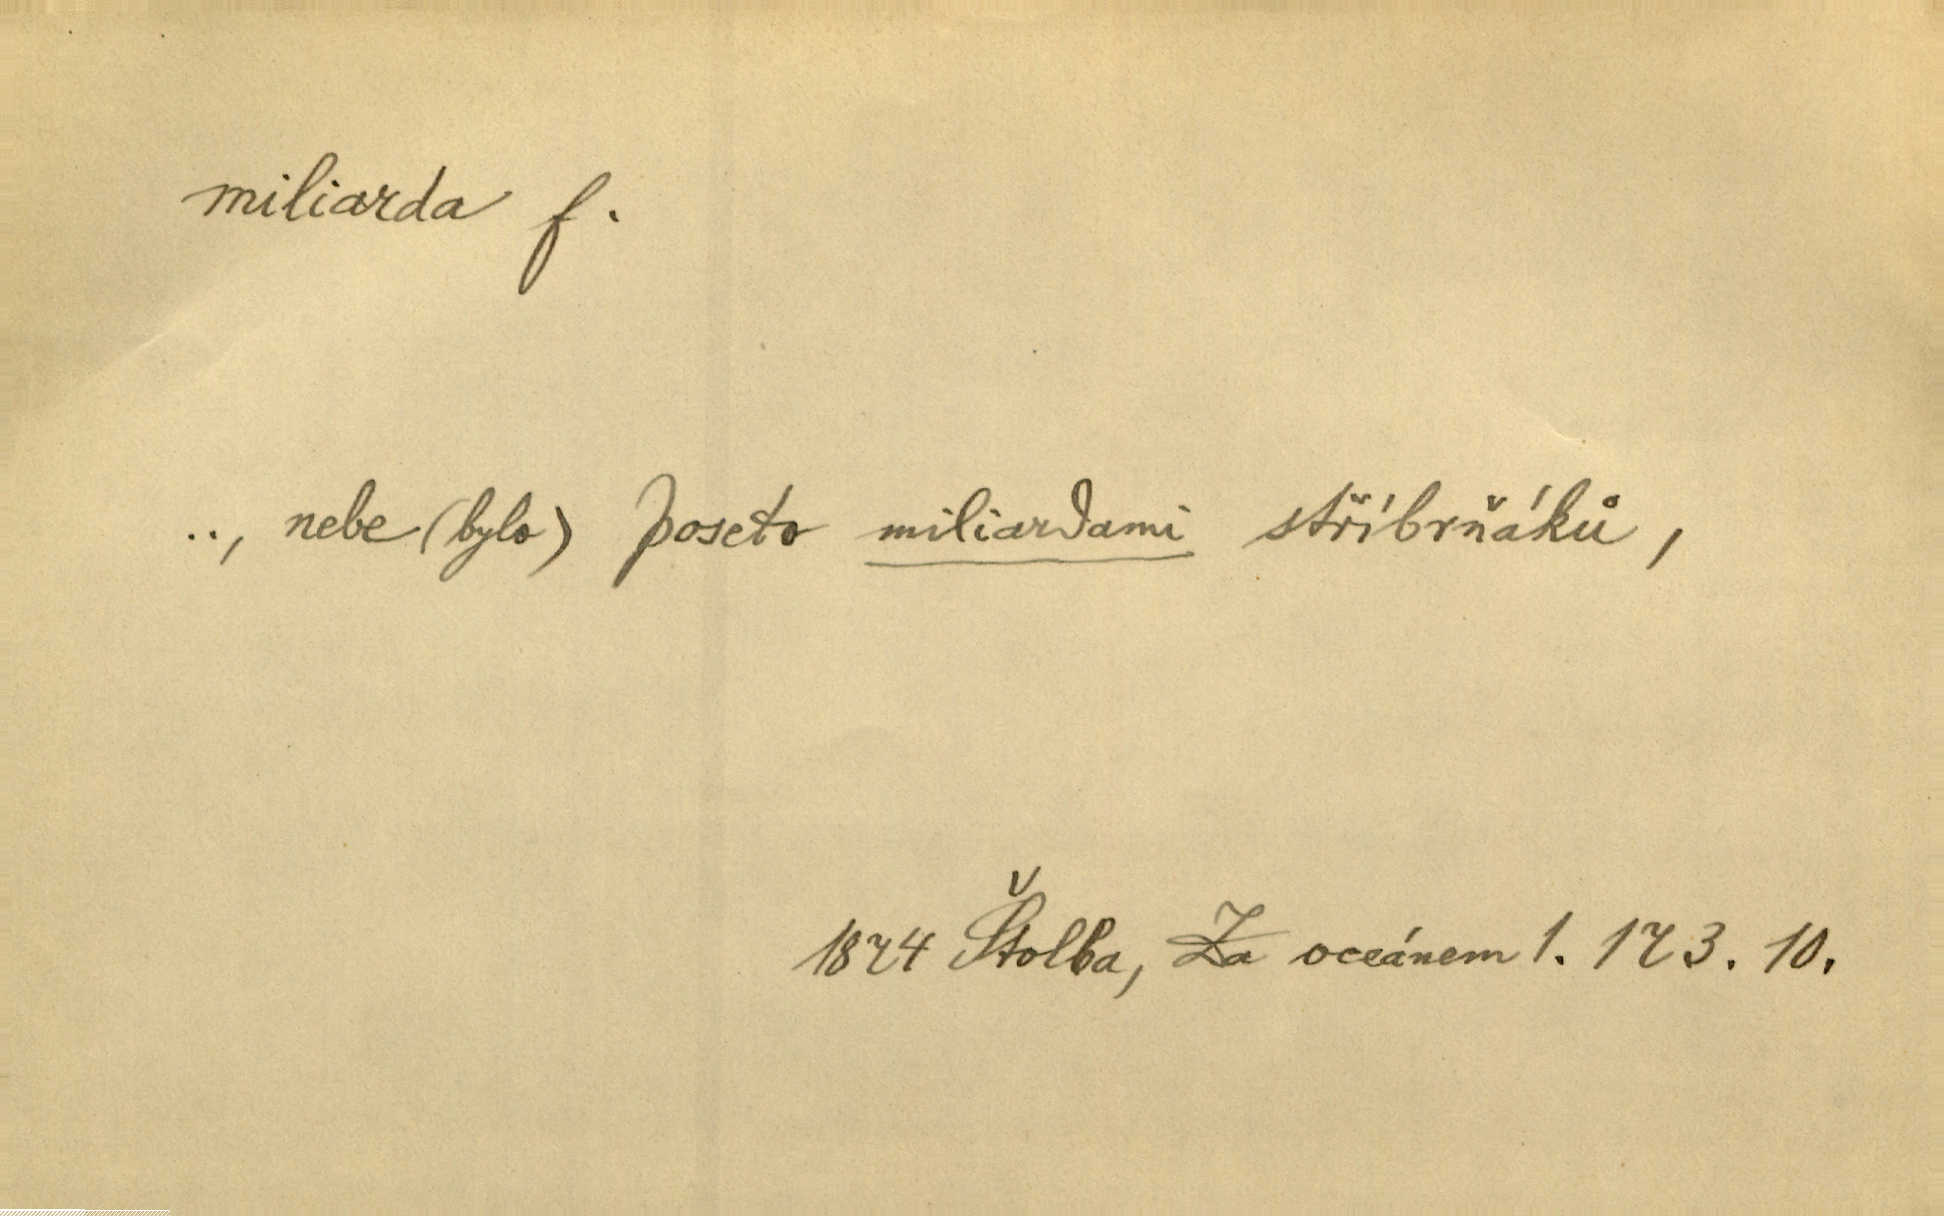 miliarda f.
.., nebe (bylo) poseto miliardami stříbrňáků,
1874 Štolba, Za oceánem 1. 173. 10.